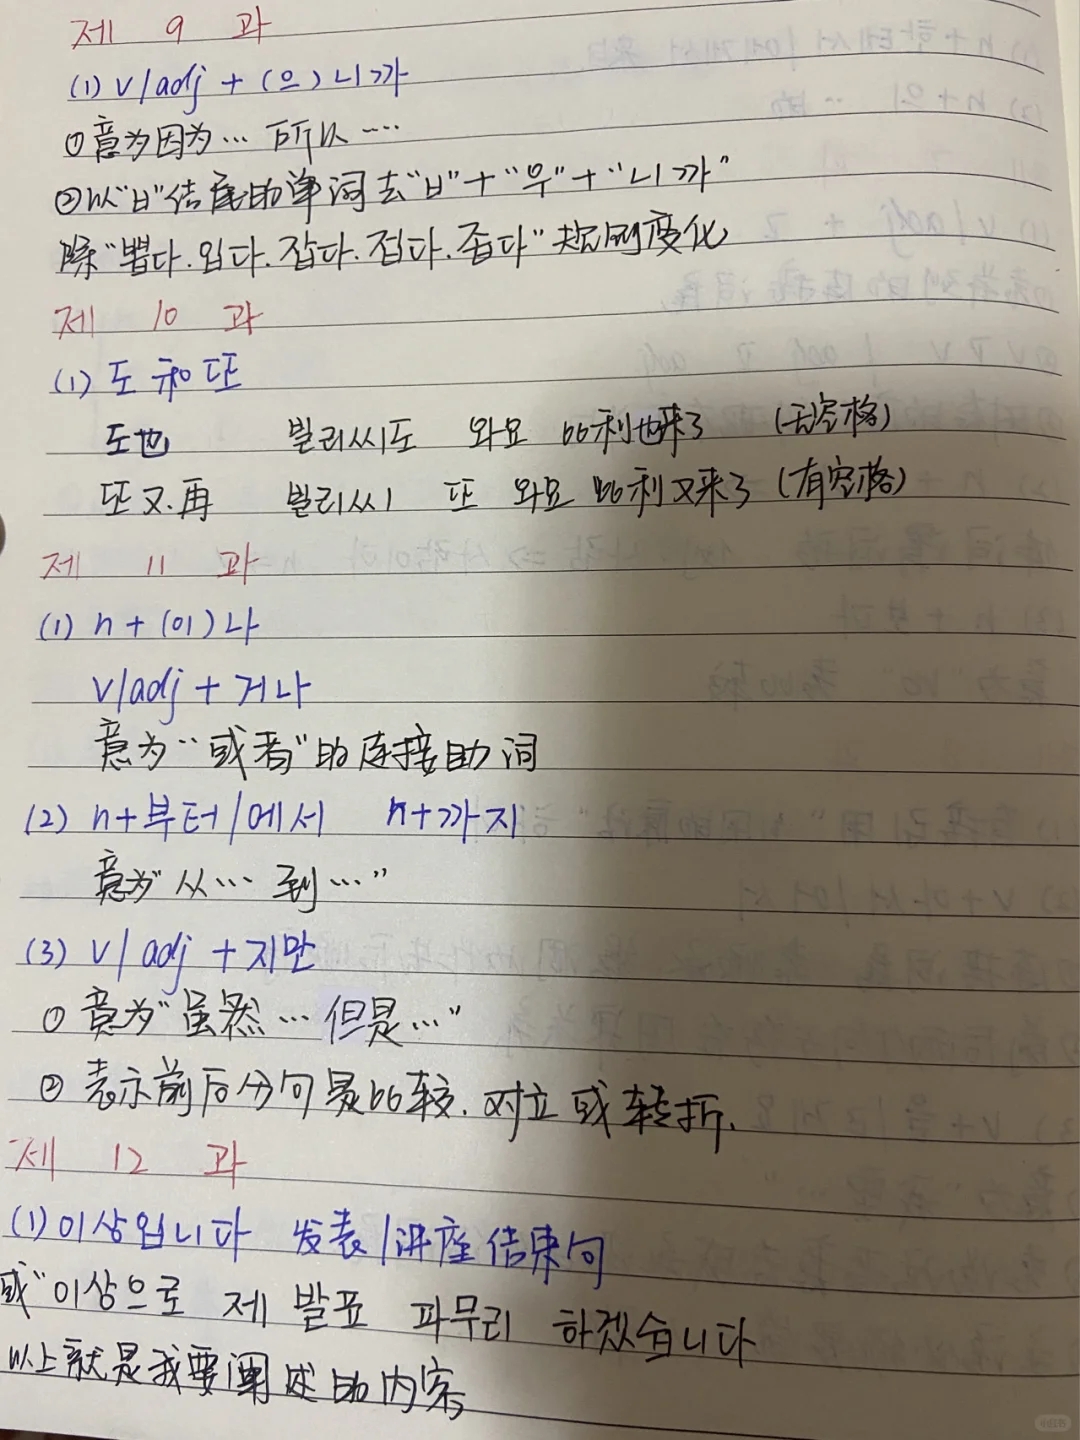 제 9 과
(1) v/adj + (으)니까
①意为因为… 所以…
②以"ㅂ"结尾的单词去"ㅂ"+"우"+"니까"
除"뽑다.입다.잡다.접다.좁다"规则变化
제 10 과
(1) 도 和 또
도也 빌리씨도 와요 比利也来了 (无空格)
또又.再 빌리씨 또 와요 比利又来了 (有空格)
제 11 과
(1) n + (이)나
v/adj + 거나
意为"或者"的连接助词
(2) n+부터/에서 n+까지
意为"从… 到…"
(3) v/adj +지만
① 意为"虽然… 但是…"
② 表示前后分句是比较.对立或转折.
제 12 과
(1)이상입니다 发表/讲座结束句
或"이상으로 제 발표 파무리 하겠습니다
以上就是我要阐述的内容